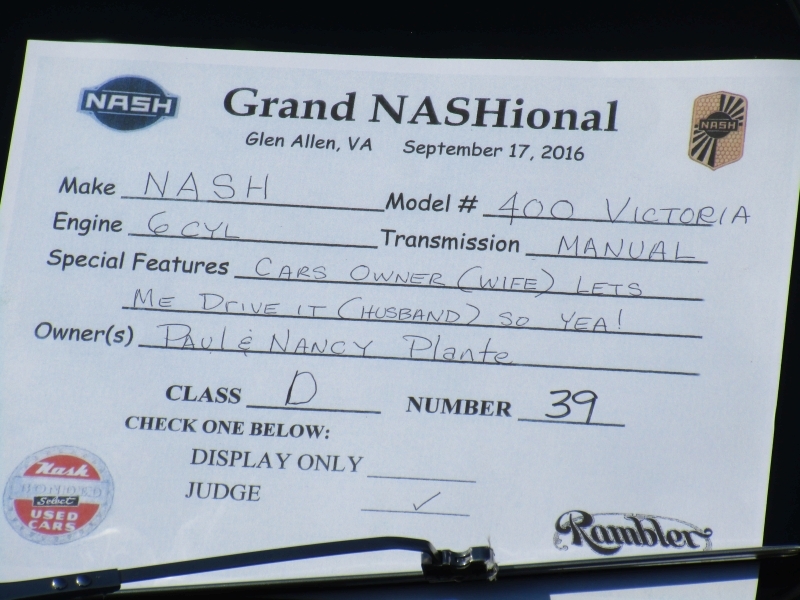 NASH
Grand NASHional
NASH
Glen Allen, VA September 17, 2016
Make NASH Model # 400 VICTORIA
Engine 6 CYL Transmission MANUAL
Special Features CARS OWNER (WIFE) LETS
ME DRIVE IT (HUSBAND) SO YEA!
Owner(s) PAUL & NANCY Plante
CLASS D NUMBER 39
CHECK ONE BELOW:
DISPLAY ONLY
JUDGE ✓
Nash
Select
USED
CARS
Rambler